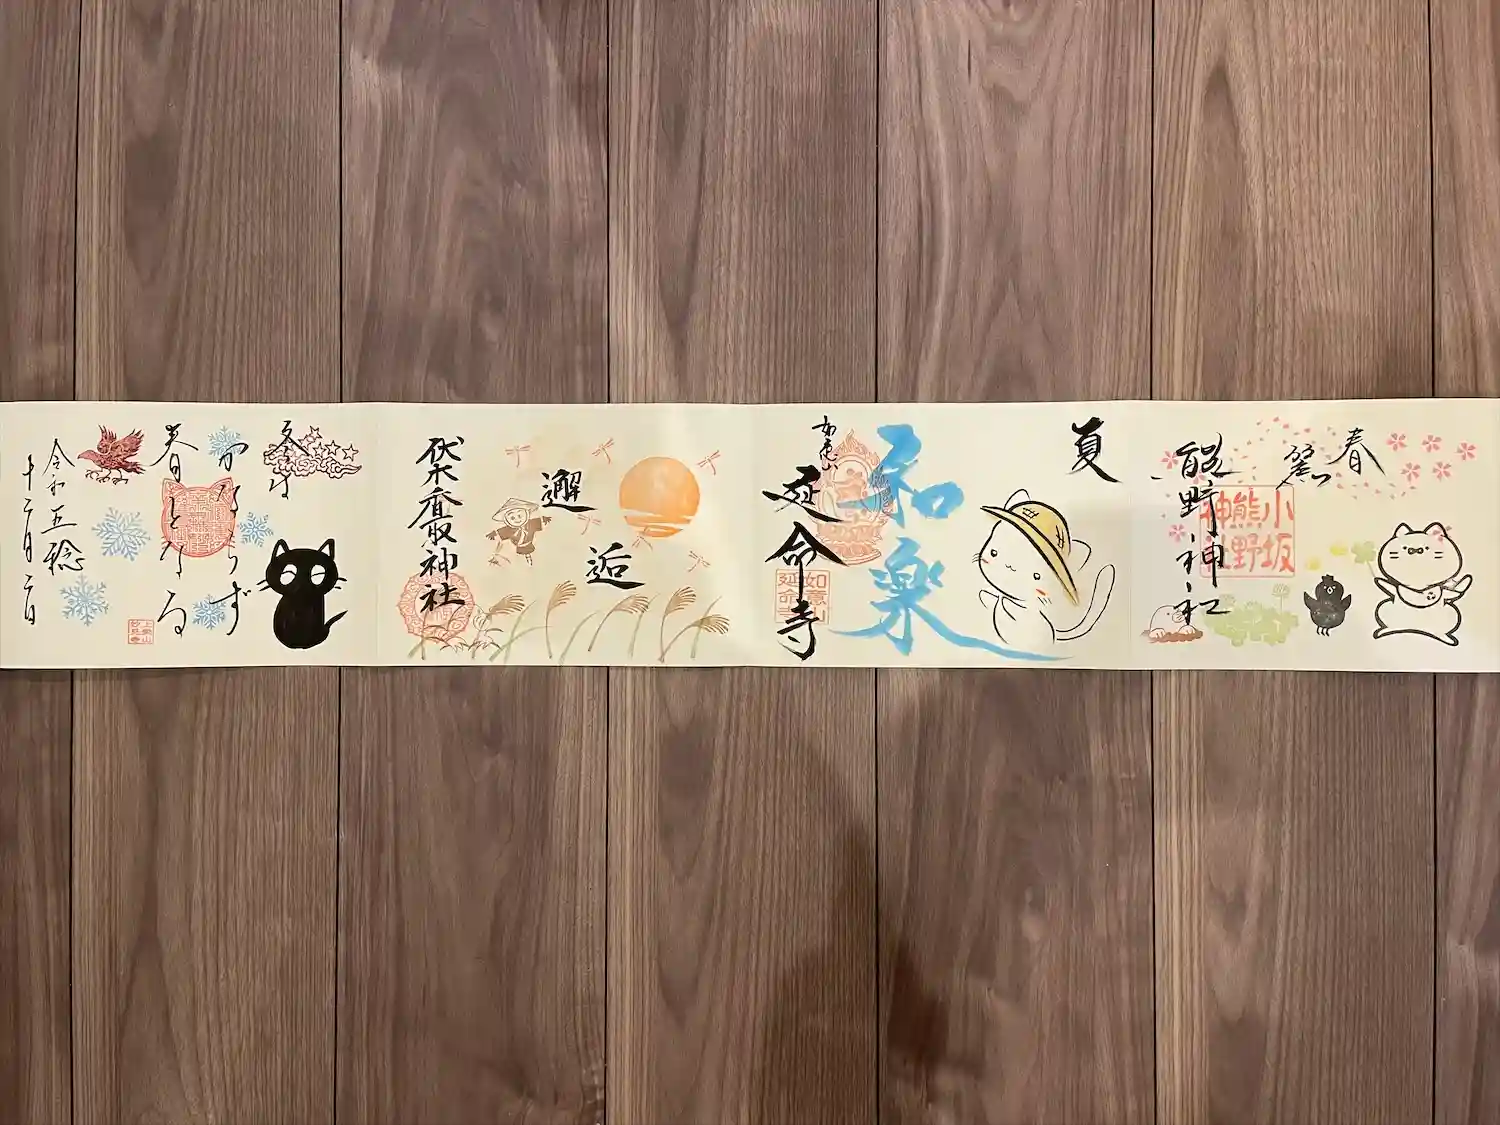 春
麗
熊野神社
小坂
熊野
神社
夏
和楽
如意山
延命寺
如意山
延命寺
邂
逅
伏木香取神社
冬は
かならず
春となる
令和五稔
十二月二日